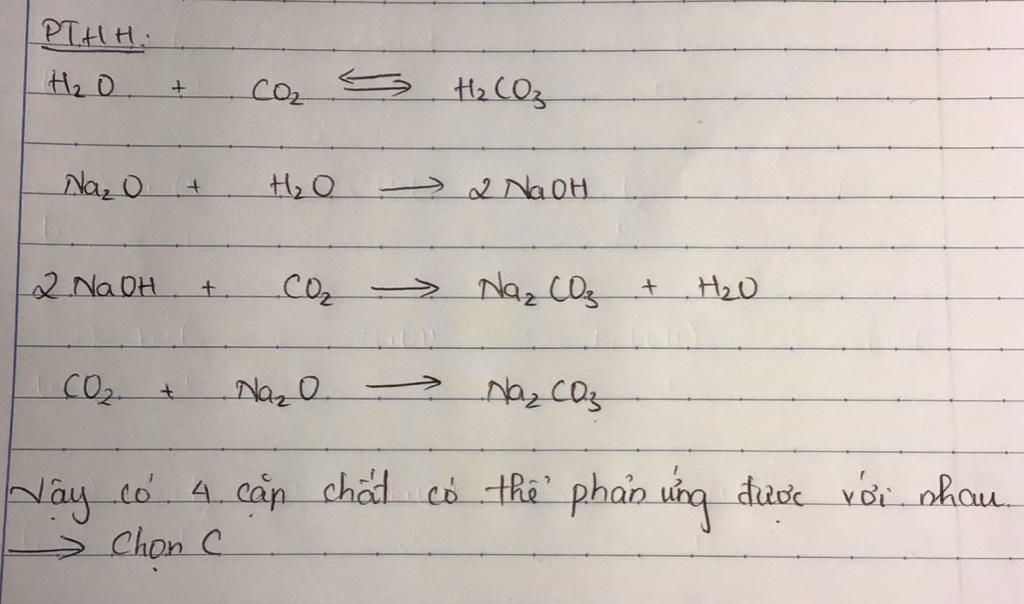 PTHH:
H₂O + CO₂ ⇌ H₂CO₃
Na₂O + H₂O → 2 NaOH
2 NaOH + CO₂ → Na₂CO₃ + H₂O
CO₂ + Na₂O → Na₂CO₃
Vậy có 4 cặp chất có thể phản ứng được với nhau.
→ Chọn C